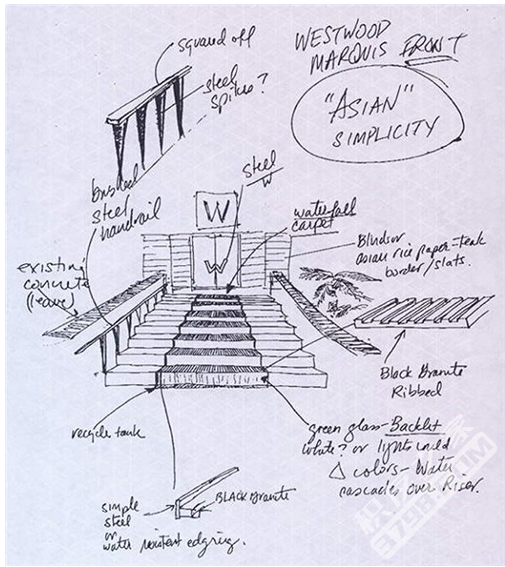 squared off
steel
spikes?
WESTWOOD
MARQUIS FRONT
"ASIAN"
SIMPLICITY
brushed
steel
handrail
steel
W
W
W
waterfall
carpet
Blinds or
asian rice paper-teak
border/slats.
existing
concrete
(leave)
Black Granite
Ribbed
recycle tank
green glass-Backlit
white? or lights could
Δ colors- Water
cascades over Riser.
simple
steel
or
water resistent edging.
BLACK Granite